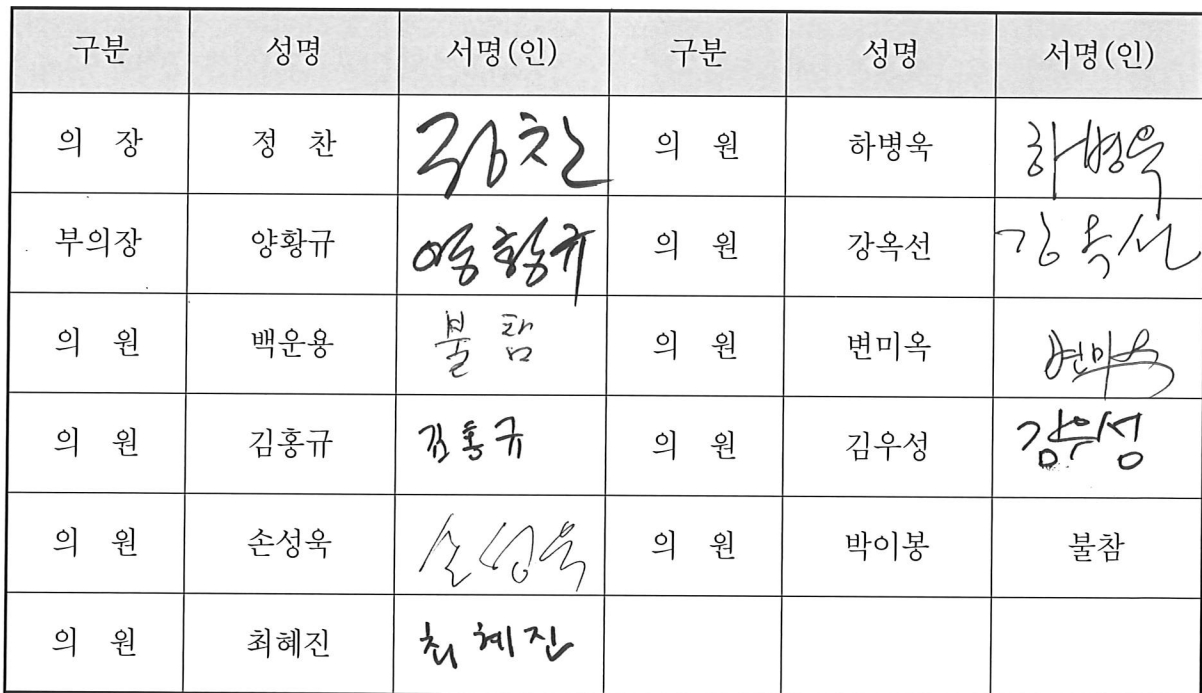 구분 성명 서명(인) 구분 성명 서명(인)
의 장 정 찬 정찬 의 원 하병욱 하병욱
부의장 양황규 양황규 의 원 강옥선 강옥선
의 원 백운용 불참 의 원 변미옥 변미옥
의 원 김홍규 김홍규 의 원 김우성 김우성
의 원 손성욱 손성욱 의 원 박이봉 불참
의 원 최혜진 최혜진